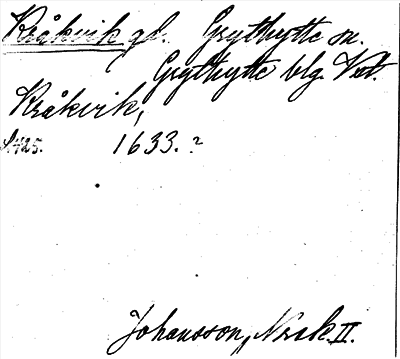 Kråkvik gl. Grythytte sn.
Grythytte blg. Vstl.
Kråkvik,
S. 425. 1633. ?
Johansson, Norsk. II.